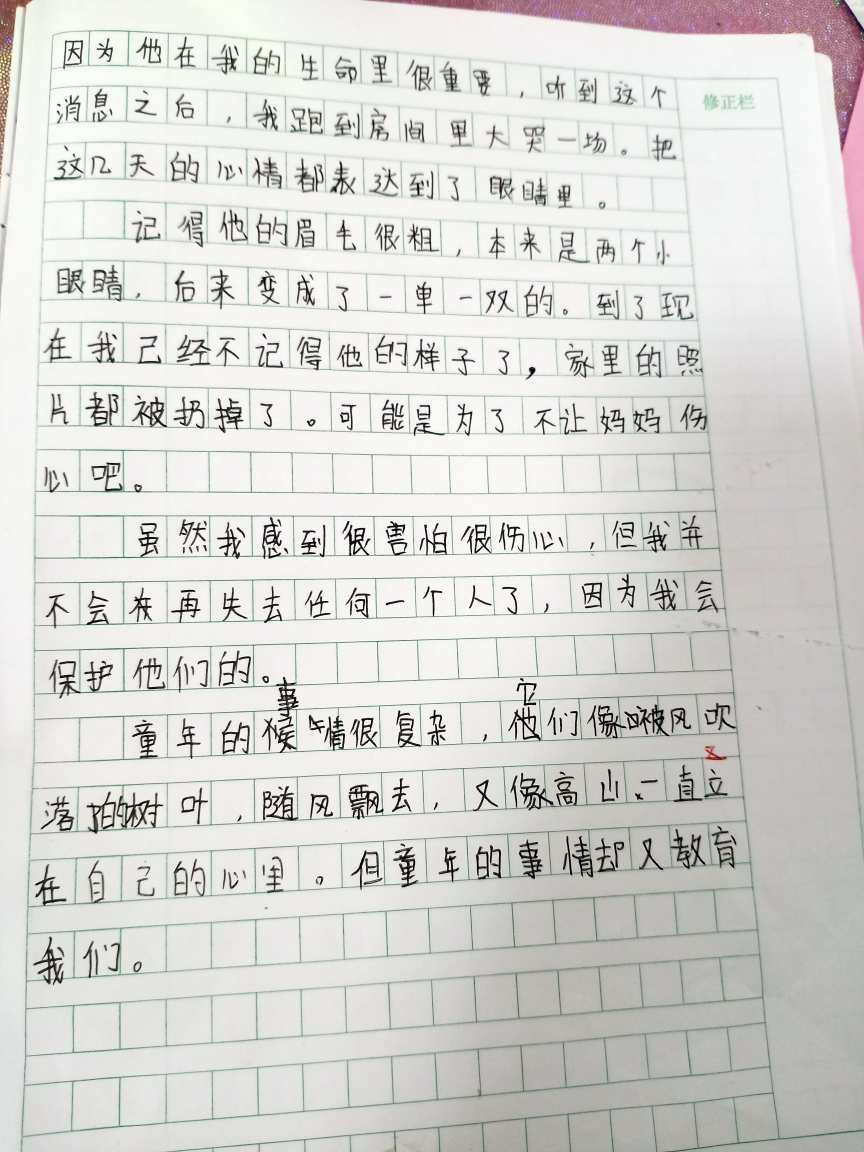 因为他在我的生命里很重要，听到这个
修正栏
消息之后，我跑到房间里大哭一场。把
这几天的心情都表达到了眼睛里。
记得他的眉毛很粗，本来是两个小
眼睛，后来变成了一单一双的。到了现
在我己经不记得他的样子了，家里的照
片都被扔掉了。可能是为了不让妈妈伤
心吧。
虽然我感到很害怕很伤心，但我并
不会在再失去任何一个人了，因为我会
保护他们的。
事 它
童年的候情很复杂，他们像被风吹
落的树叶，随风飘去，又像高山一直立
在自己的心里。但童年的事情却又教育
我们。